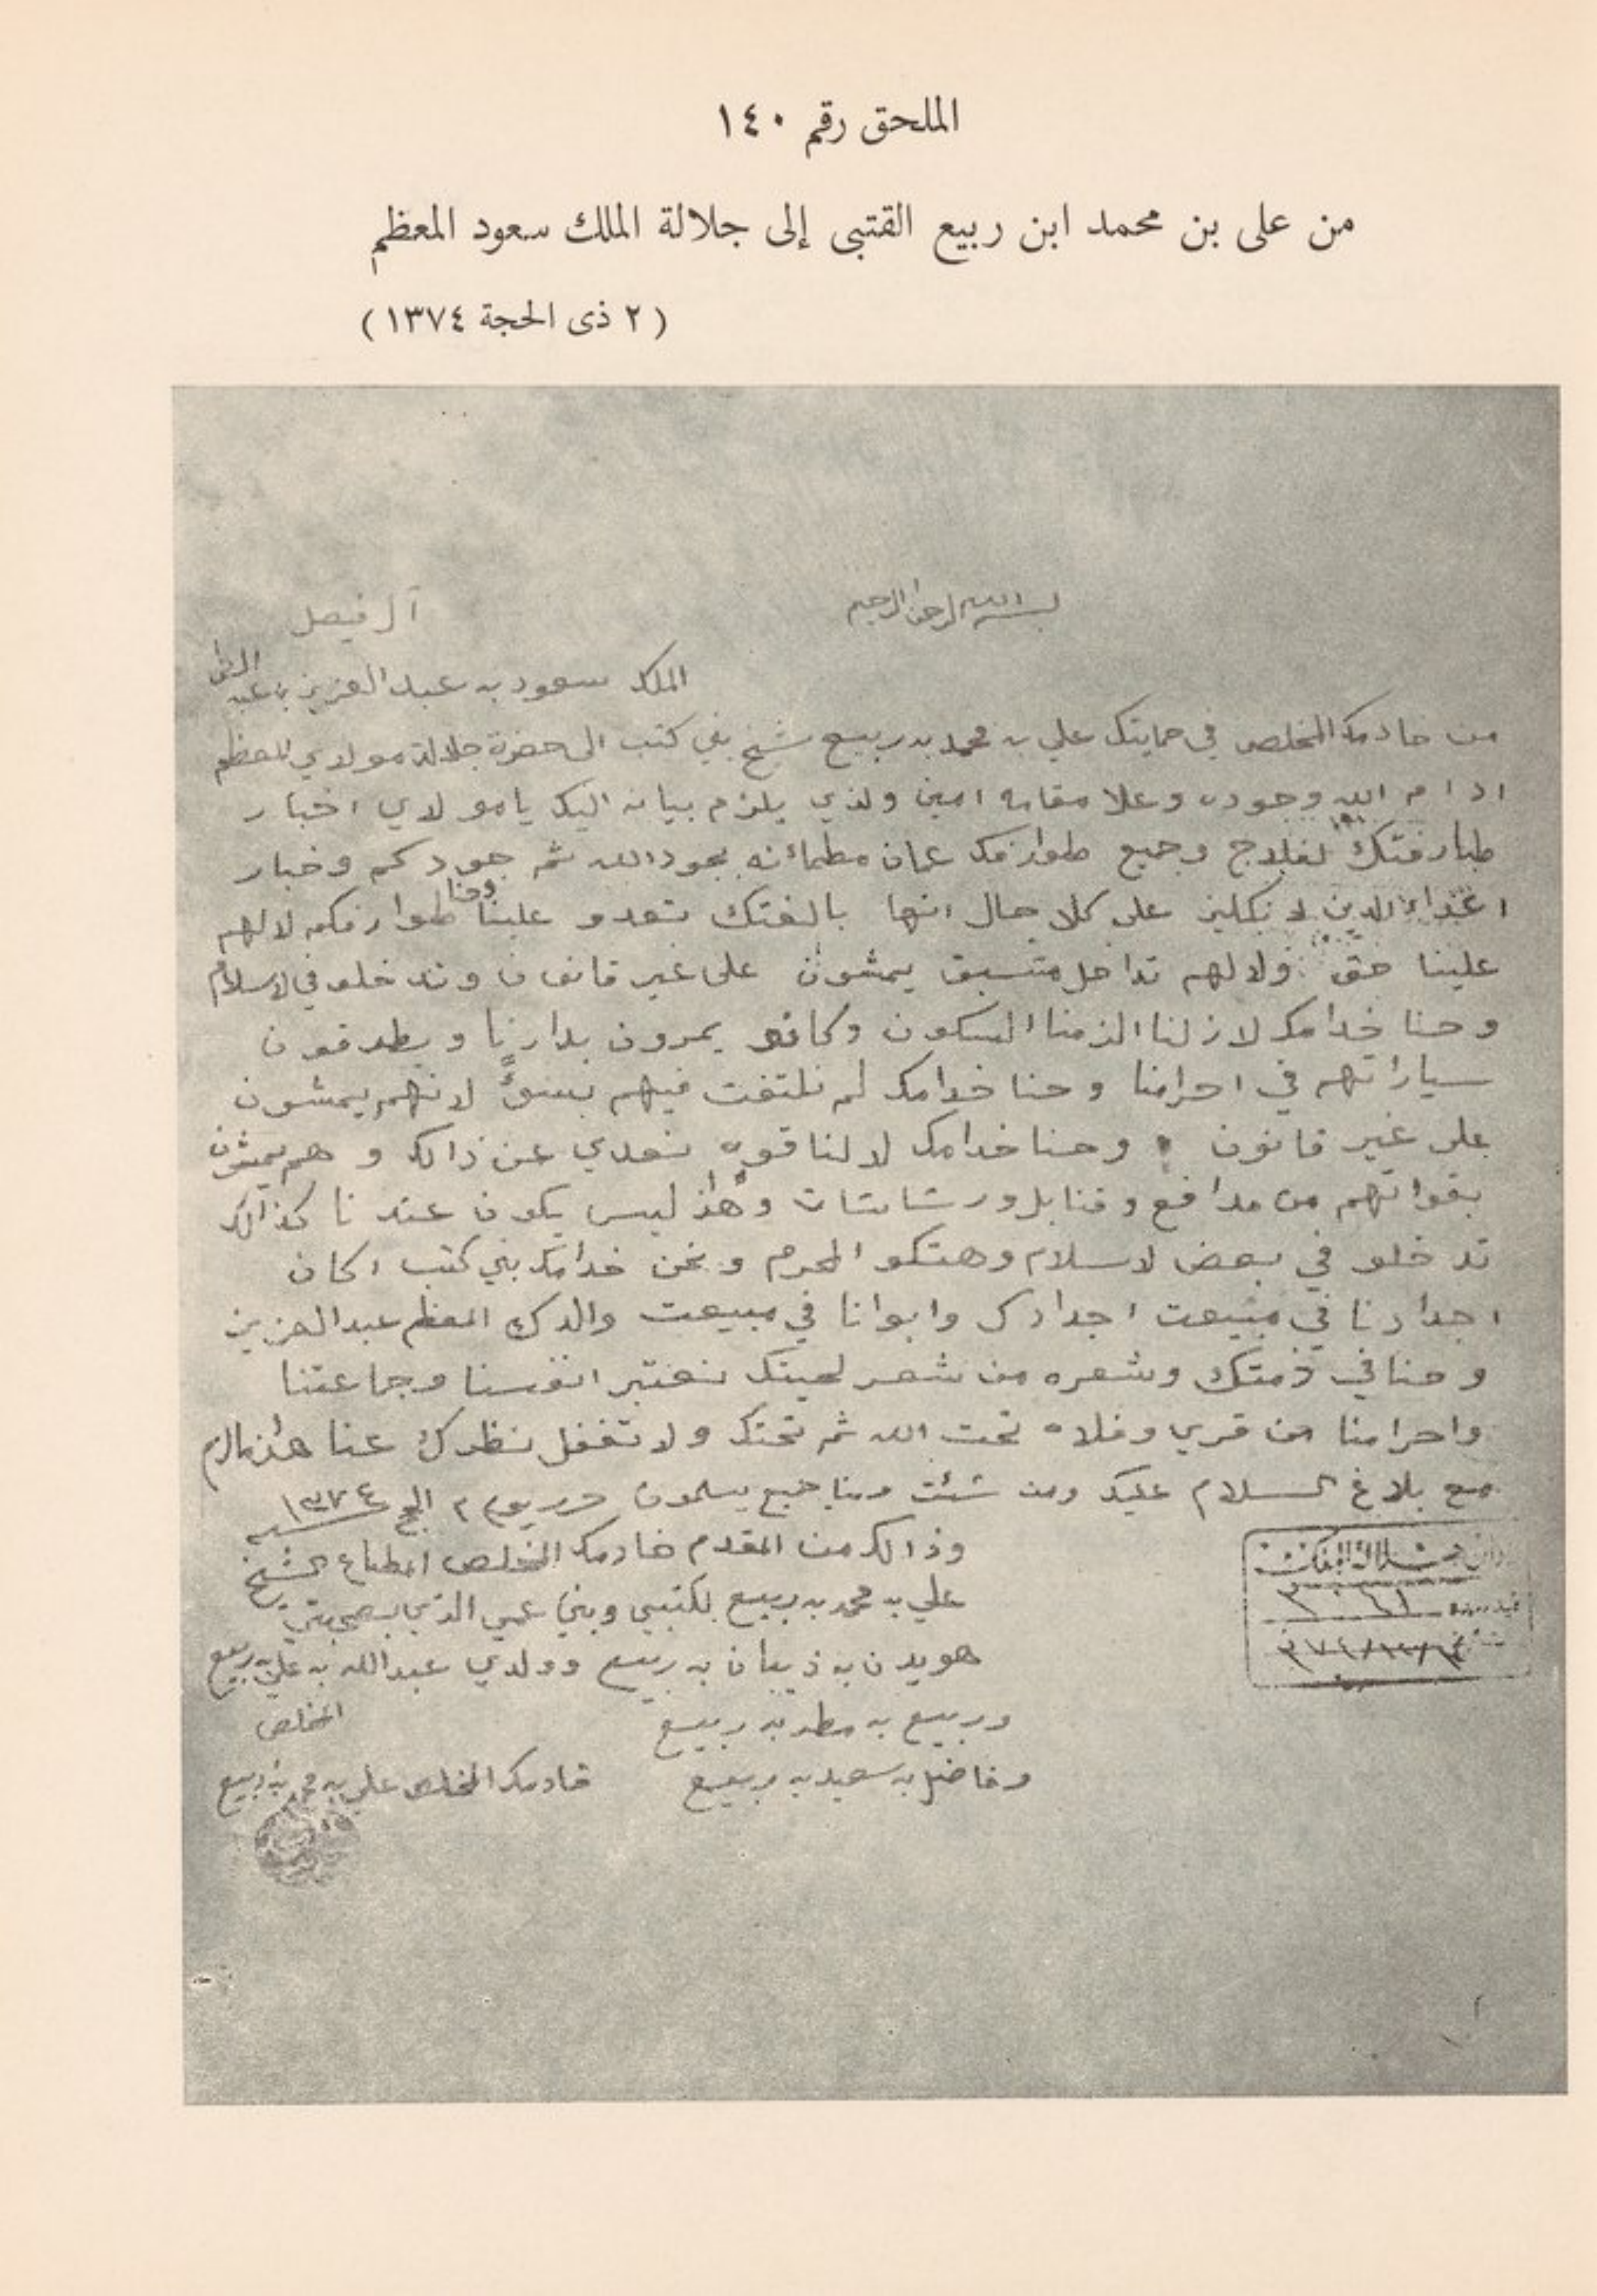 الملحق رقم ١٤٠
من على بن محمد ابن ربيع القتبى إلى جلالة الملك سعود المعظم
( ٢ ذى الحجة ١٣٧٤ )
بسم الله الرحمن الرحيم
آل فيصل
الملك سعود بن عبد العزيز بن عبد
من خادمك المخلص في حمايتك علي بن محمد بن ربيع شيخ بني كتب الى حضرة جلالة مولاي المعظم
ادام الله وجوده وعلا مقامه امين ولذي يلزم بيانه اليك يا مولاي اخبار
لفلاج وجميع طوارفك عمان مطمأنه بجود الله ثم جودكم وخبار
الدين لانكليز على كلا حال انها بالغتك تعدو علينا وحنا طوارفكم لا لهم
علينا حق ولا لهم تداخل متسبق يمشون على غير قانون وتدخلو في لاسلام
وحنا خدامك لازلنا الزمنا السكون وكانو يمرون بدارنا ويطرقون
سياراتهم في احرامنا وحنا خدامك لم نلتفت فيهم بسوءً لانهم يمشون
على غير قانون وحنا خدامك لا لنا قوه نعدي عن ذالك وهم يمشون
بقواتهم من مدافع وقنابل ورشاشات وهذا ليس يكون عندنا كذالك
تدخلو في بعض لاسلام وهتكو المحرم ونحن خدامك بني كتب اكان
اجدادنا في مبيعت اجدادك وابوانا في مبيعت والدك المعظم عبد العزيز
وحنا في ذمتك وشعره من شعر لحيتك نعتبر انفسنا وجماعتنا
واحرامنا من قرى وفلاه تحت الله ثم تحتك ولا تغفل نظرك عنا هذا مالزم
مع بلاغ السلام عليك ومن شئت ومنا جميع يسلمون حرر يوم ٢ الحج ١٣٧٤ سنه
وذالك من المقدم خادمك المخلص المطاع الشيخ
علي بن محمد بن ربيع لكتبي وبني عمي الذي بصحبتي
هويدن بن ذيبان بن ربيع وولدي عبدالله بن علي بن ربيع
وربيع بن مطر بن ربيع
المخلص
وفاضل بن سعيد بن ربيع
خادمك المخلص علي بن محمد بن ربيع